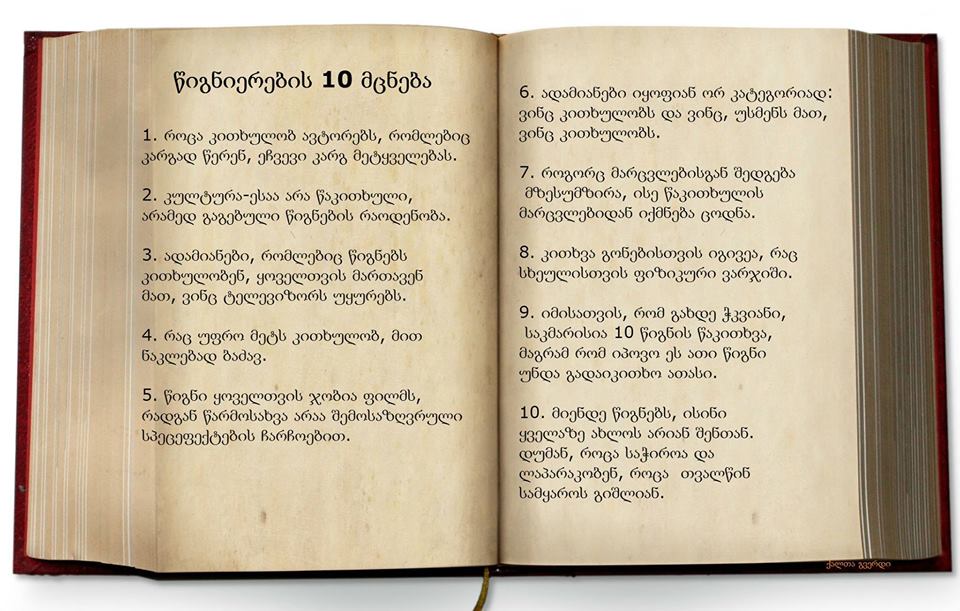 წიგნიერების 10 მცნება
1. როცა კითხულობ ავტორებს, რომლებიც
კარგად წერენ, ეჩვევი კარგ მეტყველებას.
2. კულტურა-ესაა არა წაკითხული,
არამედ გაგებული წიგნების რაოდენობა.
3. ადამიანები, რომლებიც წიგნებს
კითხულობენ, ყოველთვის მართავენ
მათ, ვინც ტელევიზორს უყურებს.
4. რაც უფრო მეტს კითხულობ, მით
ნაკლებად ბაძავ.
5. წიგნი ყოველთვის ჯობია ფილმს,
რადგან წარმოსახვა არაა შემოსაზღვრული
სპეცეფექტების ჩარჩოებით.
6. ადამიანები იყოფიან ორ კატეგორიად:
ვინც კითხულობს და ვინც, უსმენს მათ,
ვინც კითხულობს.
7. როგორც მარცვლებისგან შედგება
მზესუმზირა, ისე წაკითხულის
მარცვლებიდან იქმნება ცოდნა.
8. კითხვა გონებისთვის იგივეა, რაც
სხეულისთვის ფიზიკური ვარჯიში.
9. იმისათვის, რომ გახდე ჭკვიანი,
საკმარისია 10 წიგნის წაკითხვა,
მაგრამ რომ იპოვო ეს ათი წიგნი
უნდა გადაიკითხო ათასი.
10. მიენდე წიგნებს, ისინი
ყველაზე ახლოს არიან შენთან.
დუმან, როცა საჭიროა და
ლაპარაკობენ, როცა თვალწინ
სამყაროს გიშლიან.
ქალთა გვერდი